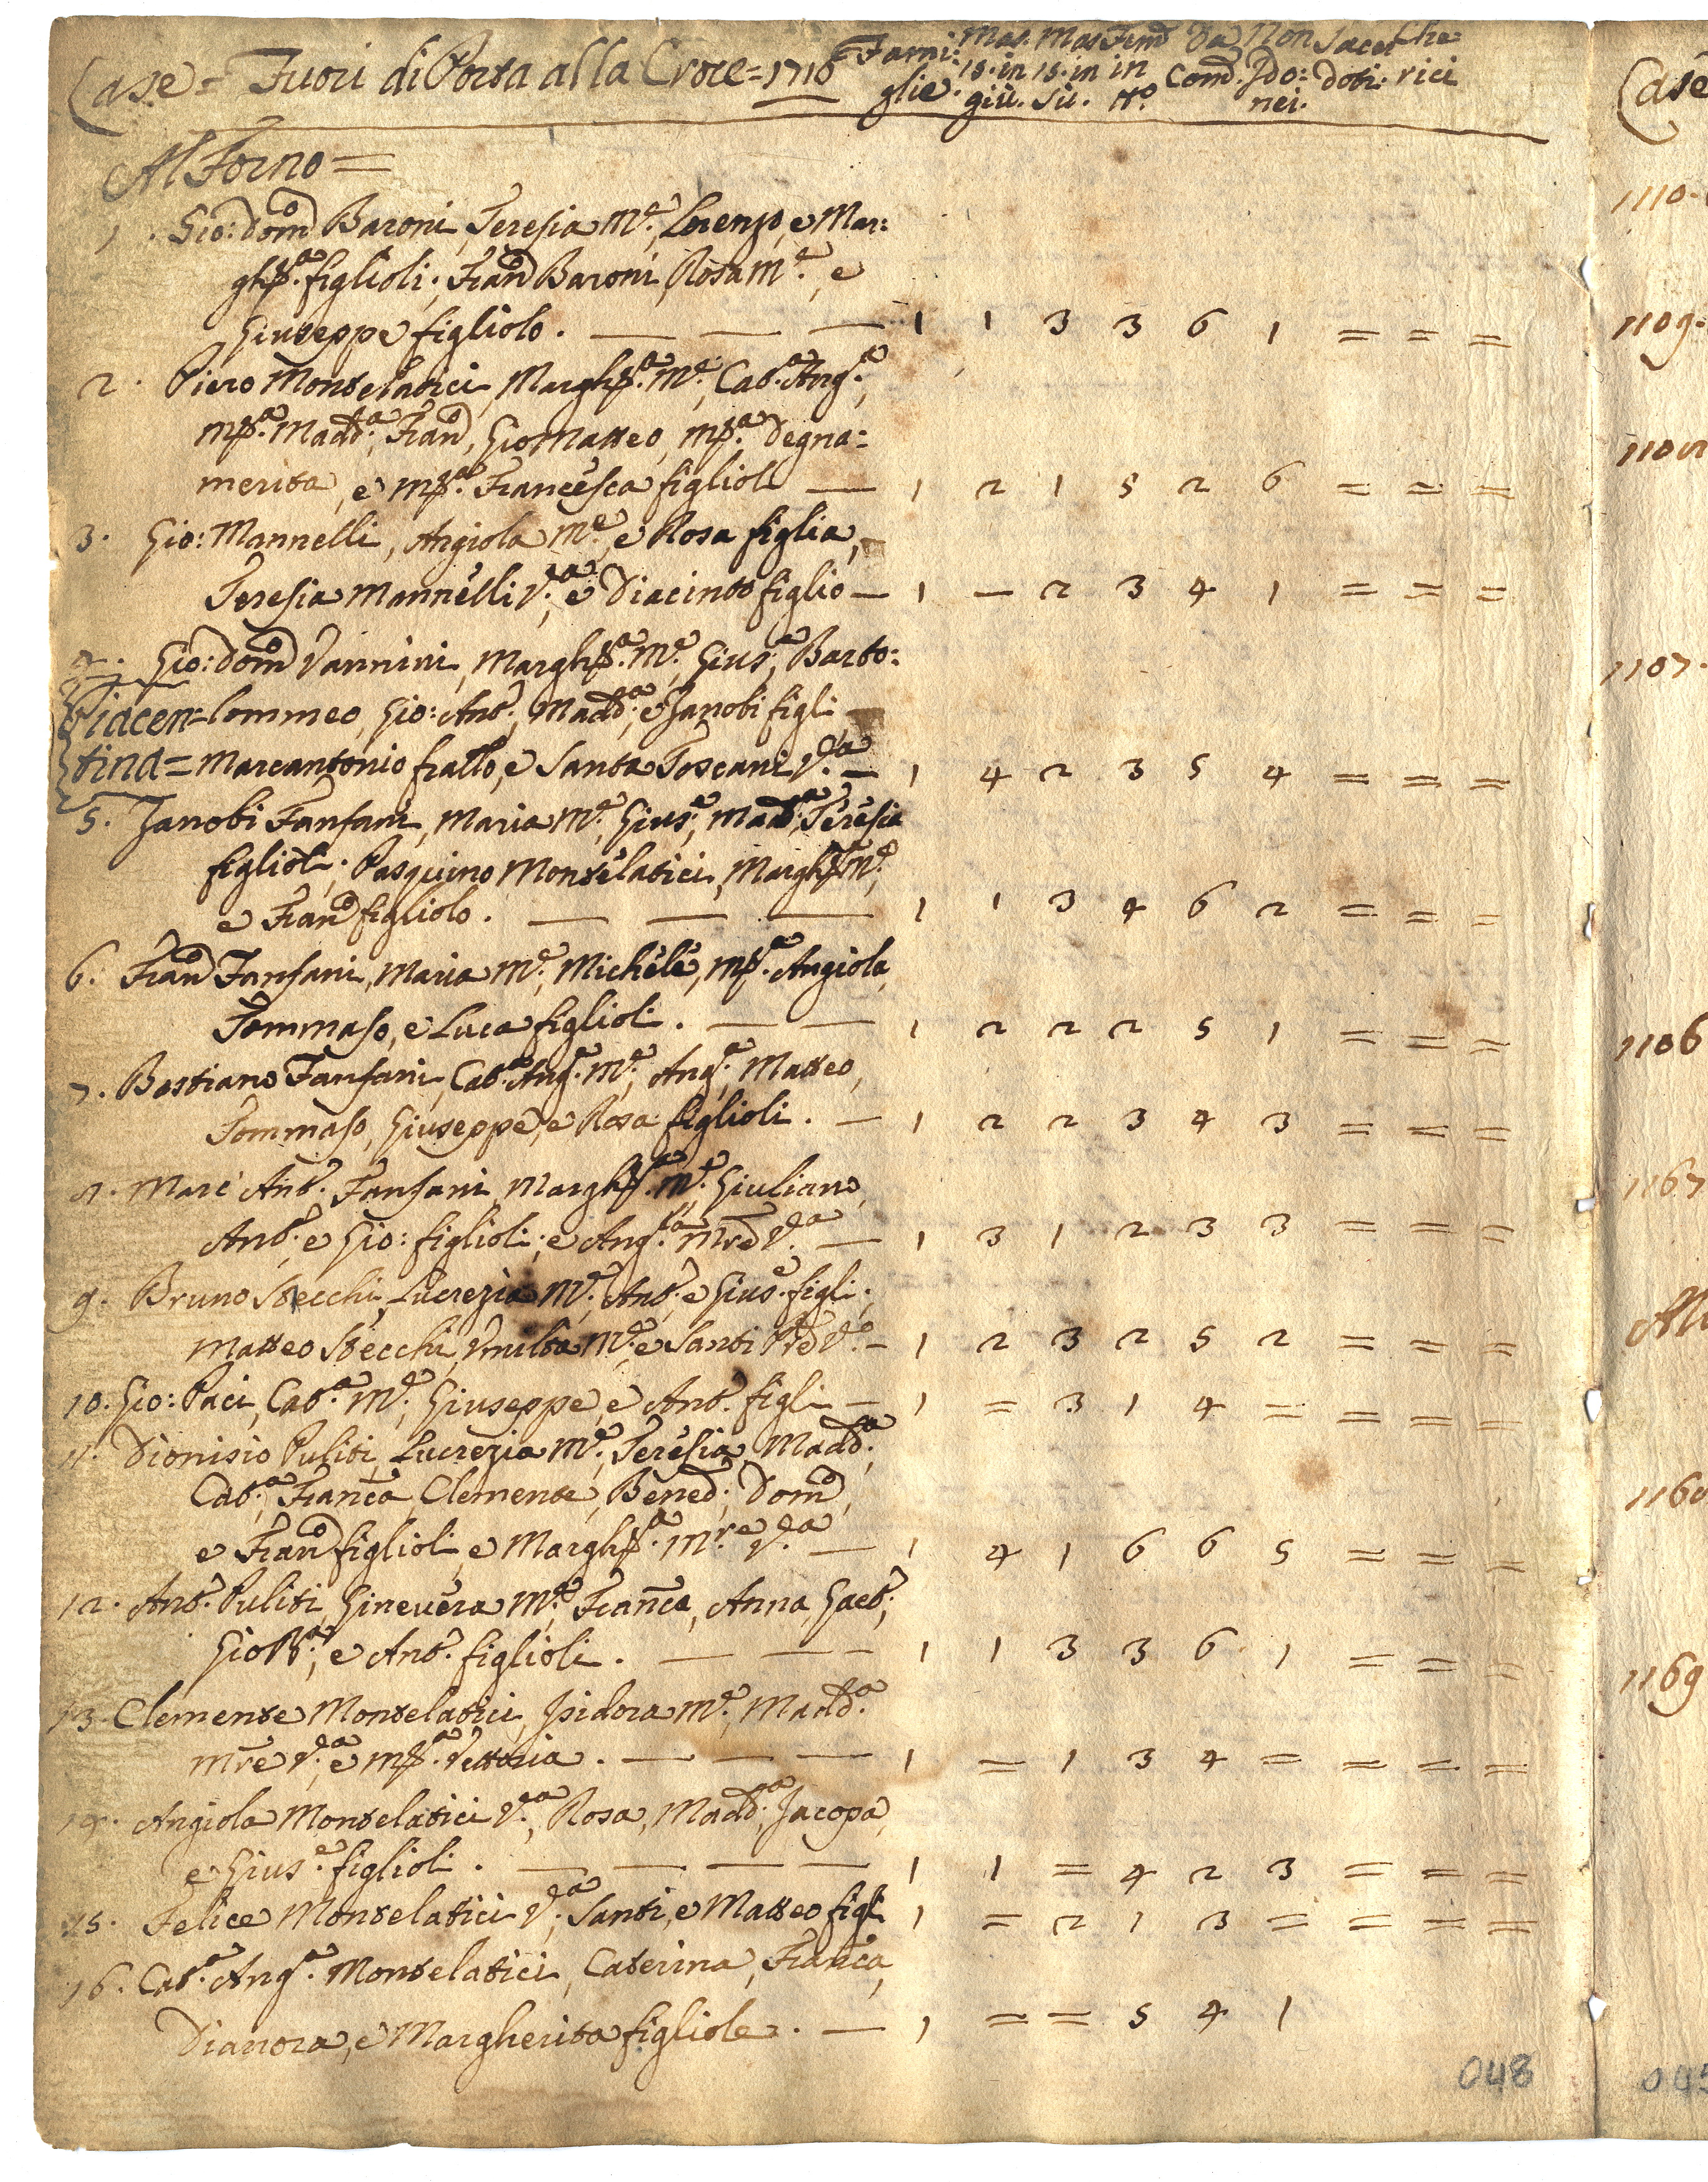 Case = Fuori di Porta alla Croce = 1710 Fami: Mas. Mas Fem̃ Da Non Sacer Che
glie. 15. in 15. in in Com̃. Ido: doti: rici
giù. Sù. N.o nei.
Al Forno =
1. Gio: Dom̃o Baroni, Teresia M.e, Lorenzo, e Mar:
gh.ta figlioli; Fran̄o Baroni, Rosa M.e, e
Giuseppe figliolo. — — — 1 1 3 3 6 1 = = =
2. Piero Montelatici, Margh.ta M.e, Cat.a Ang.a,
M.a Madd.a, Fran̄o, Gio Matteo, M.a Degna:
merita, e M.a Francesca figlioli — 1 2 1 5 2 6 = = =
3. Gio: Mannelli, Angiola M.e, e Rosa figlia,
Teresia Mannelli V.a, e Diacinto figlio — 1 — 2 3 4 1 = = =
4. Gio: Dom̃o Vannini, Margh.ta M.e, Gius.e, Barto:
Piacen= lommeo, Gio: Ant.o, Madd.a, e Zanobi figli
tina = Marcantonio frallo, e Santa Toscani V.a — 1 4 2 3 5 4 = = =
5. Zanobi Fanfani, Maria M.e, Gius.e, Madd.a, Teresia
figlioli; Pasquino Montelatici, Margh.ta M.e,
e Fran̄o figliolo. — — — 1 1 3 4 6 2 = = =
6. Fran̄o Fanfani, Maria M.e, Michele, M.a Angiola,
Tommaso, e Luca figlioli. — — 1 2 2 2 5 1 = = =
7. Bastiano Fanfani, Cat.a Ang.a M.e, Ang.a, Matteo,
Tommaso, Giuseppe, e Rosa figlioli. — 1 2 2 3 4 3 = = =
8. Marc Ant.o Fanfani, Margh.ta M.e, Giuliano,
Ant.o, e Gio: figlioli; e Ang.la Mr̃e V.a — 1 3 1 2 3 3 = = =
9. Bruno Stecchi, Lucrezia M.e, Ant.o, e Gius.e figli;
Matteo Stecchi, Umilta M.e, e Santi Pr̃e V.o — 1 2 3 2 5 2 = = =
10. Gio: Paci, Cat.a M.e, Giuseppe, e Ant.o figli — 1 = 3 1 4 = = = =
11. Dionisio Puliti, Lucrezia M.e, Teresia, Madd.a,
Cat.a, Fran̄ca, Clemente, Bened.o, Dom̃o,
e Fran̄o figlioli, e Margh.ta M.re V.a — 1 4 1 6 6 5 = = =
12. Ant.o Puliti, Ginevera M.e, Fran̄ca, Anna, Gaet.o,
Gio B.a, e Ant.o figlioli. — — — 1 1 3 3 6 1 = = =
13. Clemente Montelatici, Isidora M.e, Madd.a
Mr̃e V.a, e M.a Vettoria. — — — 1 = 1 3 4 = = = =
14. Angiola Montelatici V.a, Rosa, Madd.a, Jacopa,
e Gius.e figlioli. — — — — 1 1 = 4 2 3 = = =
15. Felice Montelatici V.a, Santi, e Matteo figli 1 = 2 1 3 = = = =
16. Cat.a Ang.a Montelatici, Caterina, Fran̄ca,
Dianora, e Margherita figliole. — 1 = = 5 4 1
048
Case
1110.
1109.
1107.
1106
1167
Al
1169